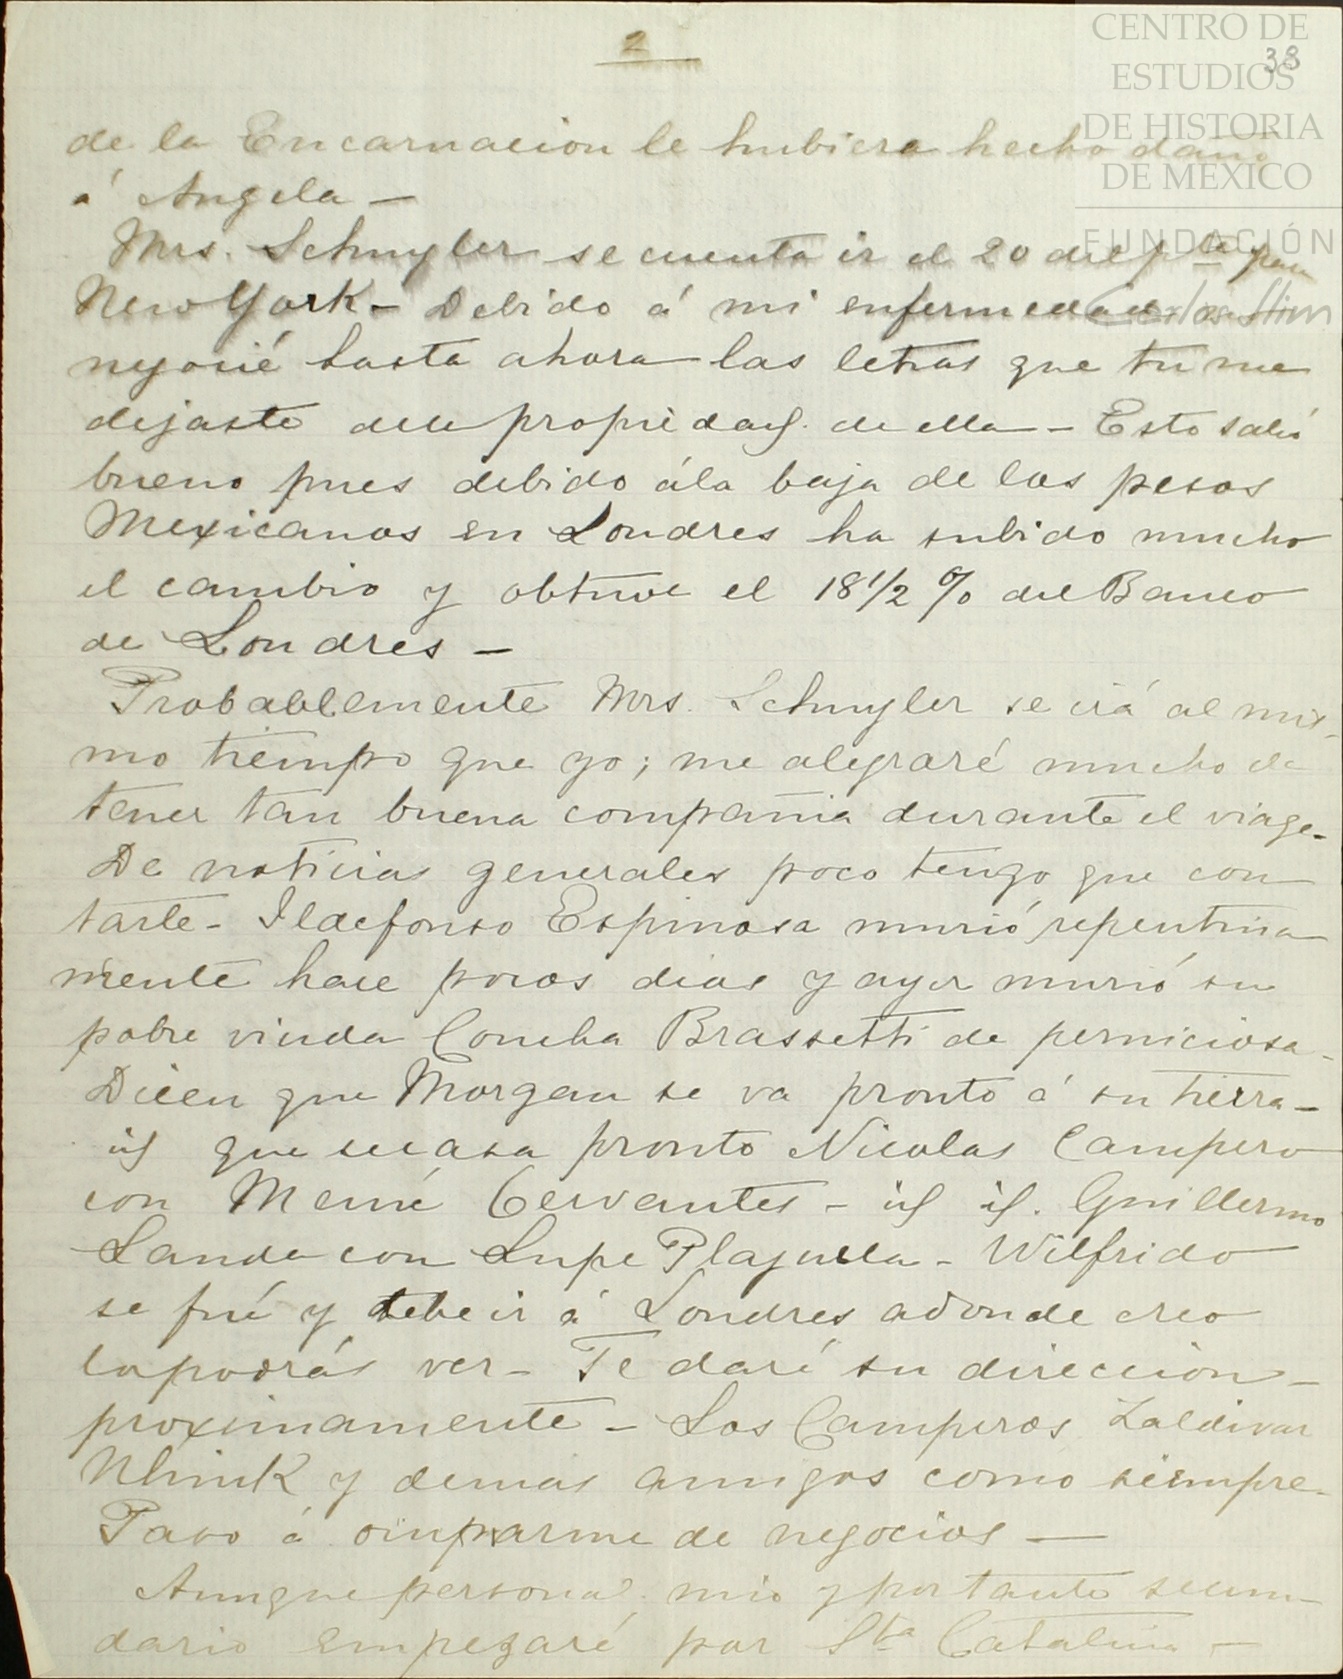 2
38
CENTRO DE
ESTUDIOS
DE HISTORIA
DE MÉXICO
FUNDACIÓN
de la Encarnacion le hubiera hecho daño
á Angela —
Mrs. Schuyler se cuenta ir el 20 del pte para
New York — Debido á mi enfermedad no
negocié hasta ahora las letras que tu me
dejaste de la propiedad de ella — Esto salió
bueno pues debido ála baja de los pesos
Mexicanos en Londres ha subido mucho
el cambio y obtuve el 18 1/2 % del Banco
de Londres —
Probablemente Mrs. Schuyler se irá al mis-
mo tiempo que yo; me alegraré mucho de
tener tan buena compañia durante el viage.
De noticias generales poco tengo que con
tarte — Ildefonso Espinosa murió repentina
mente hace pocos dias y ayer murió su
pobre viuda Concha Brassetti de perniciosa —
Dicen que Morgan se va pronto á su tierra —
id que se casa pronto Nicolas Campero
con Memé Cervantes — id id. Guillermo
Landa con Lupe — Wilfrido
se fué y debe ir á Londres adonde creo
lo podrás ver — Te daré su direccion
proximamente — Los Camperos, Zaldivar
y demas amigos como siempre.
Paso á ocuparme de negocios —
Aunque personal mio y por tanto secun-
dario empezaré por Sta Catalina —